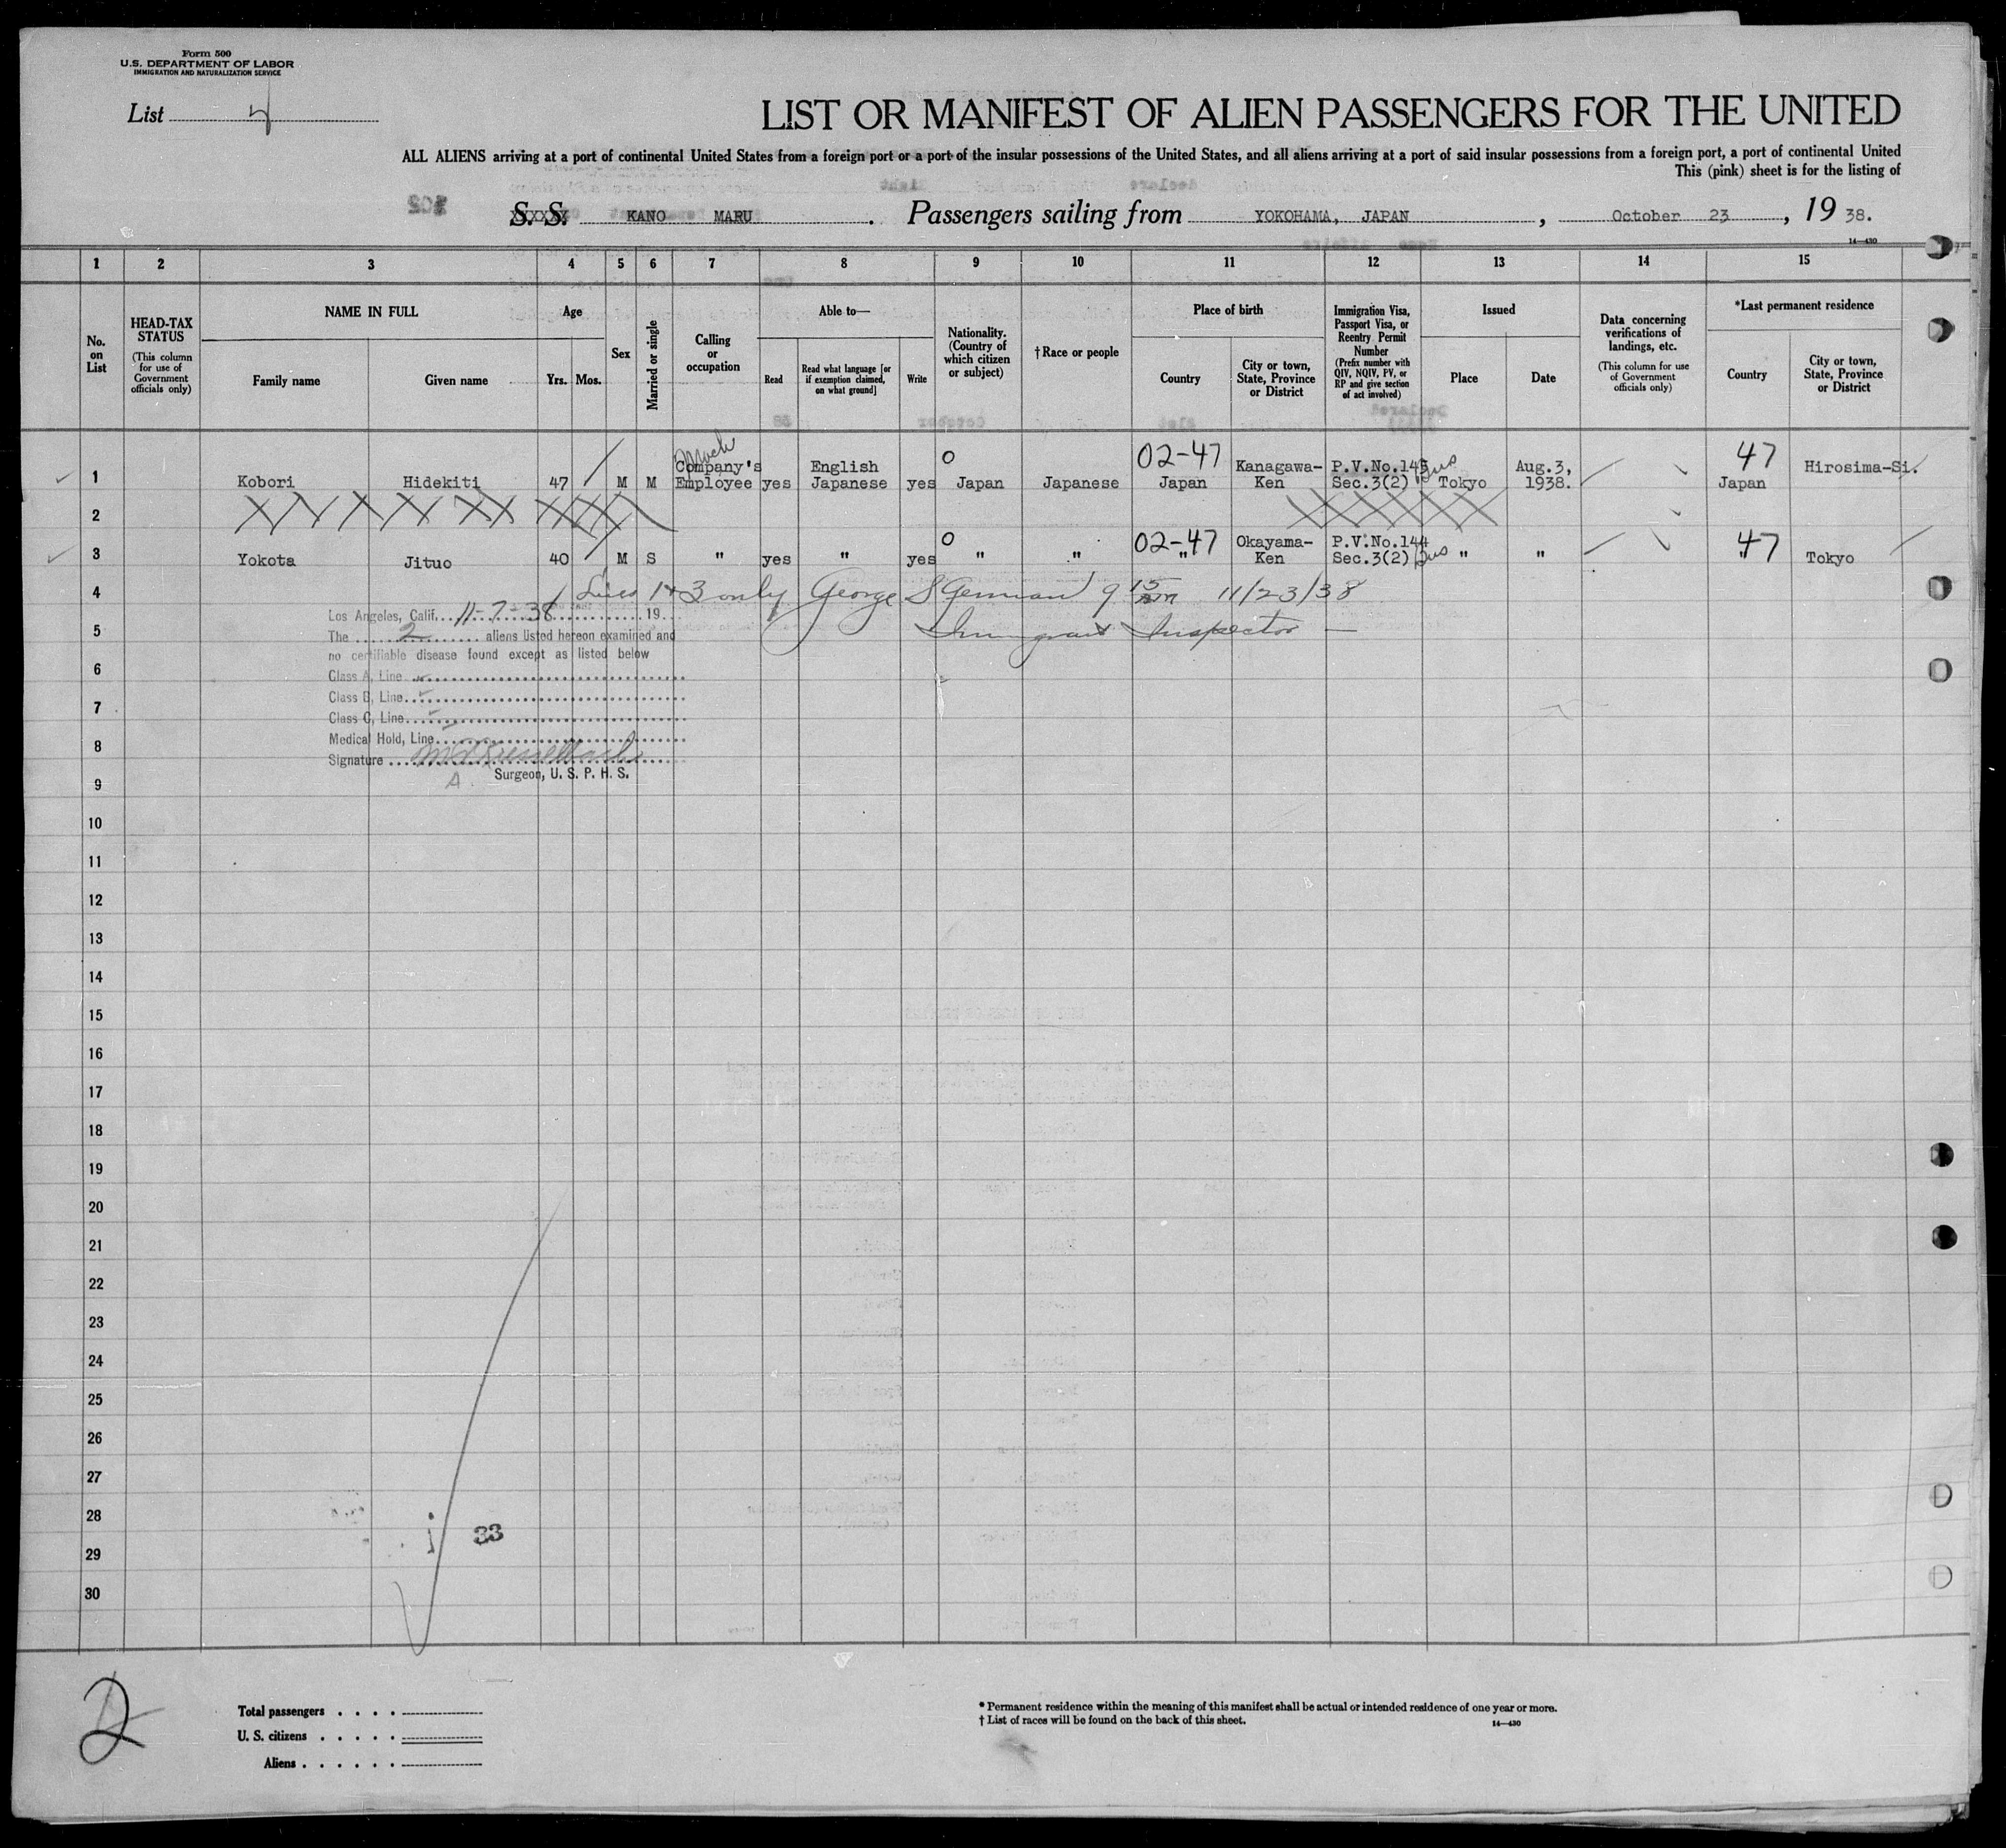 Form 500
U.S. DEPARTMENT OF LABOR
IMMIGRATION AND NATURALIZATION SERVICE
List 4
LIST OR MANIFEST OF ALIEN PASSENGERS FOR THE UNITED
ALL ALIENS arriving at a port of continental United States from a foreign port or a port of the insular possessions of the United States, and all aliens arriving at a port of said insular possessions from a foreign port, a port of continental United
This (pink) sheet is for the listing of
S. S. KANO MARU. Passengers sailing from YOKOHAMA, JAPAN, October 23, 1938.
14—430
1 2 3 4 5 6 7 8 9 10 11 12 13 14 15
No. on List
HEAD-TAX STATUS
(This column for use of Government officials only)
NAME IN FULL
Family name
Given name
Age
Yrs. Mos.
Sex
Married or single
Calling or occupation
Able to—
Read
Read what language [or if exemption claimed, on what ground]
Write
Nationality. (Country of which citizen or subject)
† Race or people
Place of birth
Country
City or town, State, Province or District
Immigration Visa, Passport Visa, or Reentry Permit Number
(Prefix number with QIV, NQIV, PV, or RP and give section of act involved)
Issued
Place
Date
Data concerning verifications of landings, etc.
(This column for use of Government officials only)
*Last permanent residence
Country
City or town, State, Province or District
1 Kobori Hidekiti 47 M M Company's Employee yes English Japanese yes 0 Japan Japanese 02-47 Japan Kanagawa-Ken P.V.No.145 Sec.3(2) Tokyo Aug.3, 1938. 47 Japan Hirosima-Si.
2
3 Yokota Jituo 40 M S " yes " yes 0 " " 02-47 " Okayama-Ken P.V.No.144 Sec.3(2) " " 47 " Tokyo
4 Lines 1+3 only George S German 9 15 am 11/23/38
Los Angeles, Calif. 11-7-38 19
5 Immigrant Inspector
The 2 aliens listed hereon examined and
no certifiable disease found except as listed below
6
Class A, Line
Class B, Line
7
Class C, Line
Medical Hold, Line
8
Signature
Surgeon, U. S. P. H. S.
9
10
11
12
13
14
15
16
17
18
19
20
21
22
23
24
25
26
27
28
33
29
30
2
Total passengers
U. S. citizens
Aliens
* Permanent residence within the meaning of this manifest shall be actual or intended residence of one year or more.
† List of races will be found on the back of this sheet.
14—430